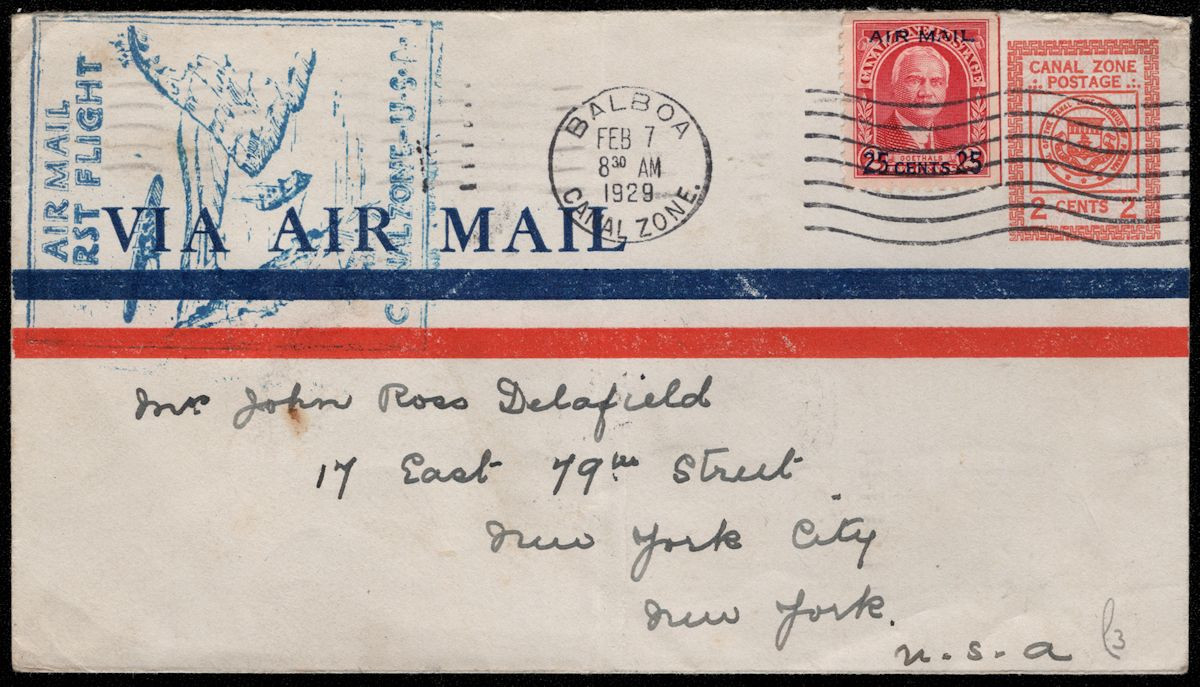 AIR MAIL
RST FLIGHT
CANAL ZONE-U·S·A
BALBOA
FEB 7
8³⁰ AM
1929
CANAL ZONE.
AIR MAIL
CANAL ZONE POSTAGE
GOETHALS
25 CENTS 25
CANAL ZONE
POSTAGE
2 CENTS 2
VIA AIR MAIL
Mr John Ross Delafield
17 East 79th Street
New York City
New York.
U.S.A